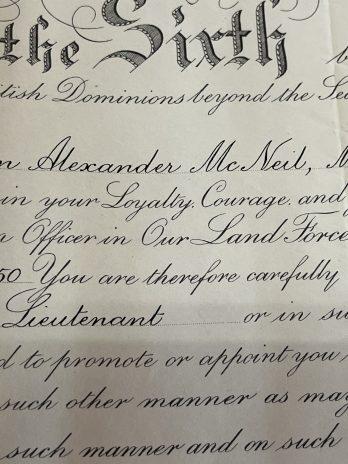 the Sixth b
itish Dominions beyond the Se
n Alexander McNeil, M
in your Loyalty, Courage, and
n Officer in Our Land Force
50 You are therefore carefully
Lieutenant or in su
d to promote or appoint you
such other manner as may
such manner and on such